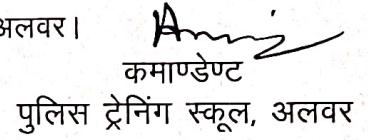 अलवर।
कमाण्डेण्ट
पुलिस ट्रेनिंग स्कूल, अलवर